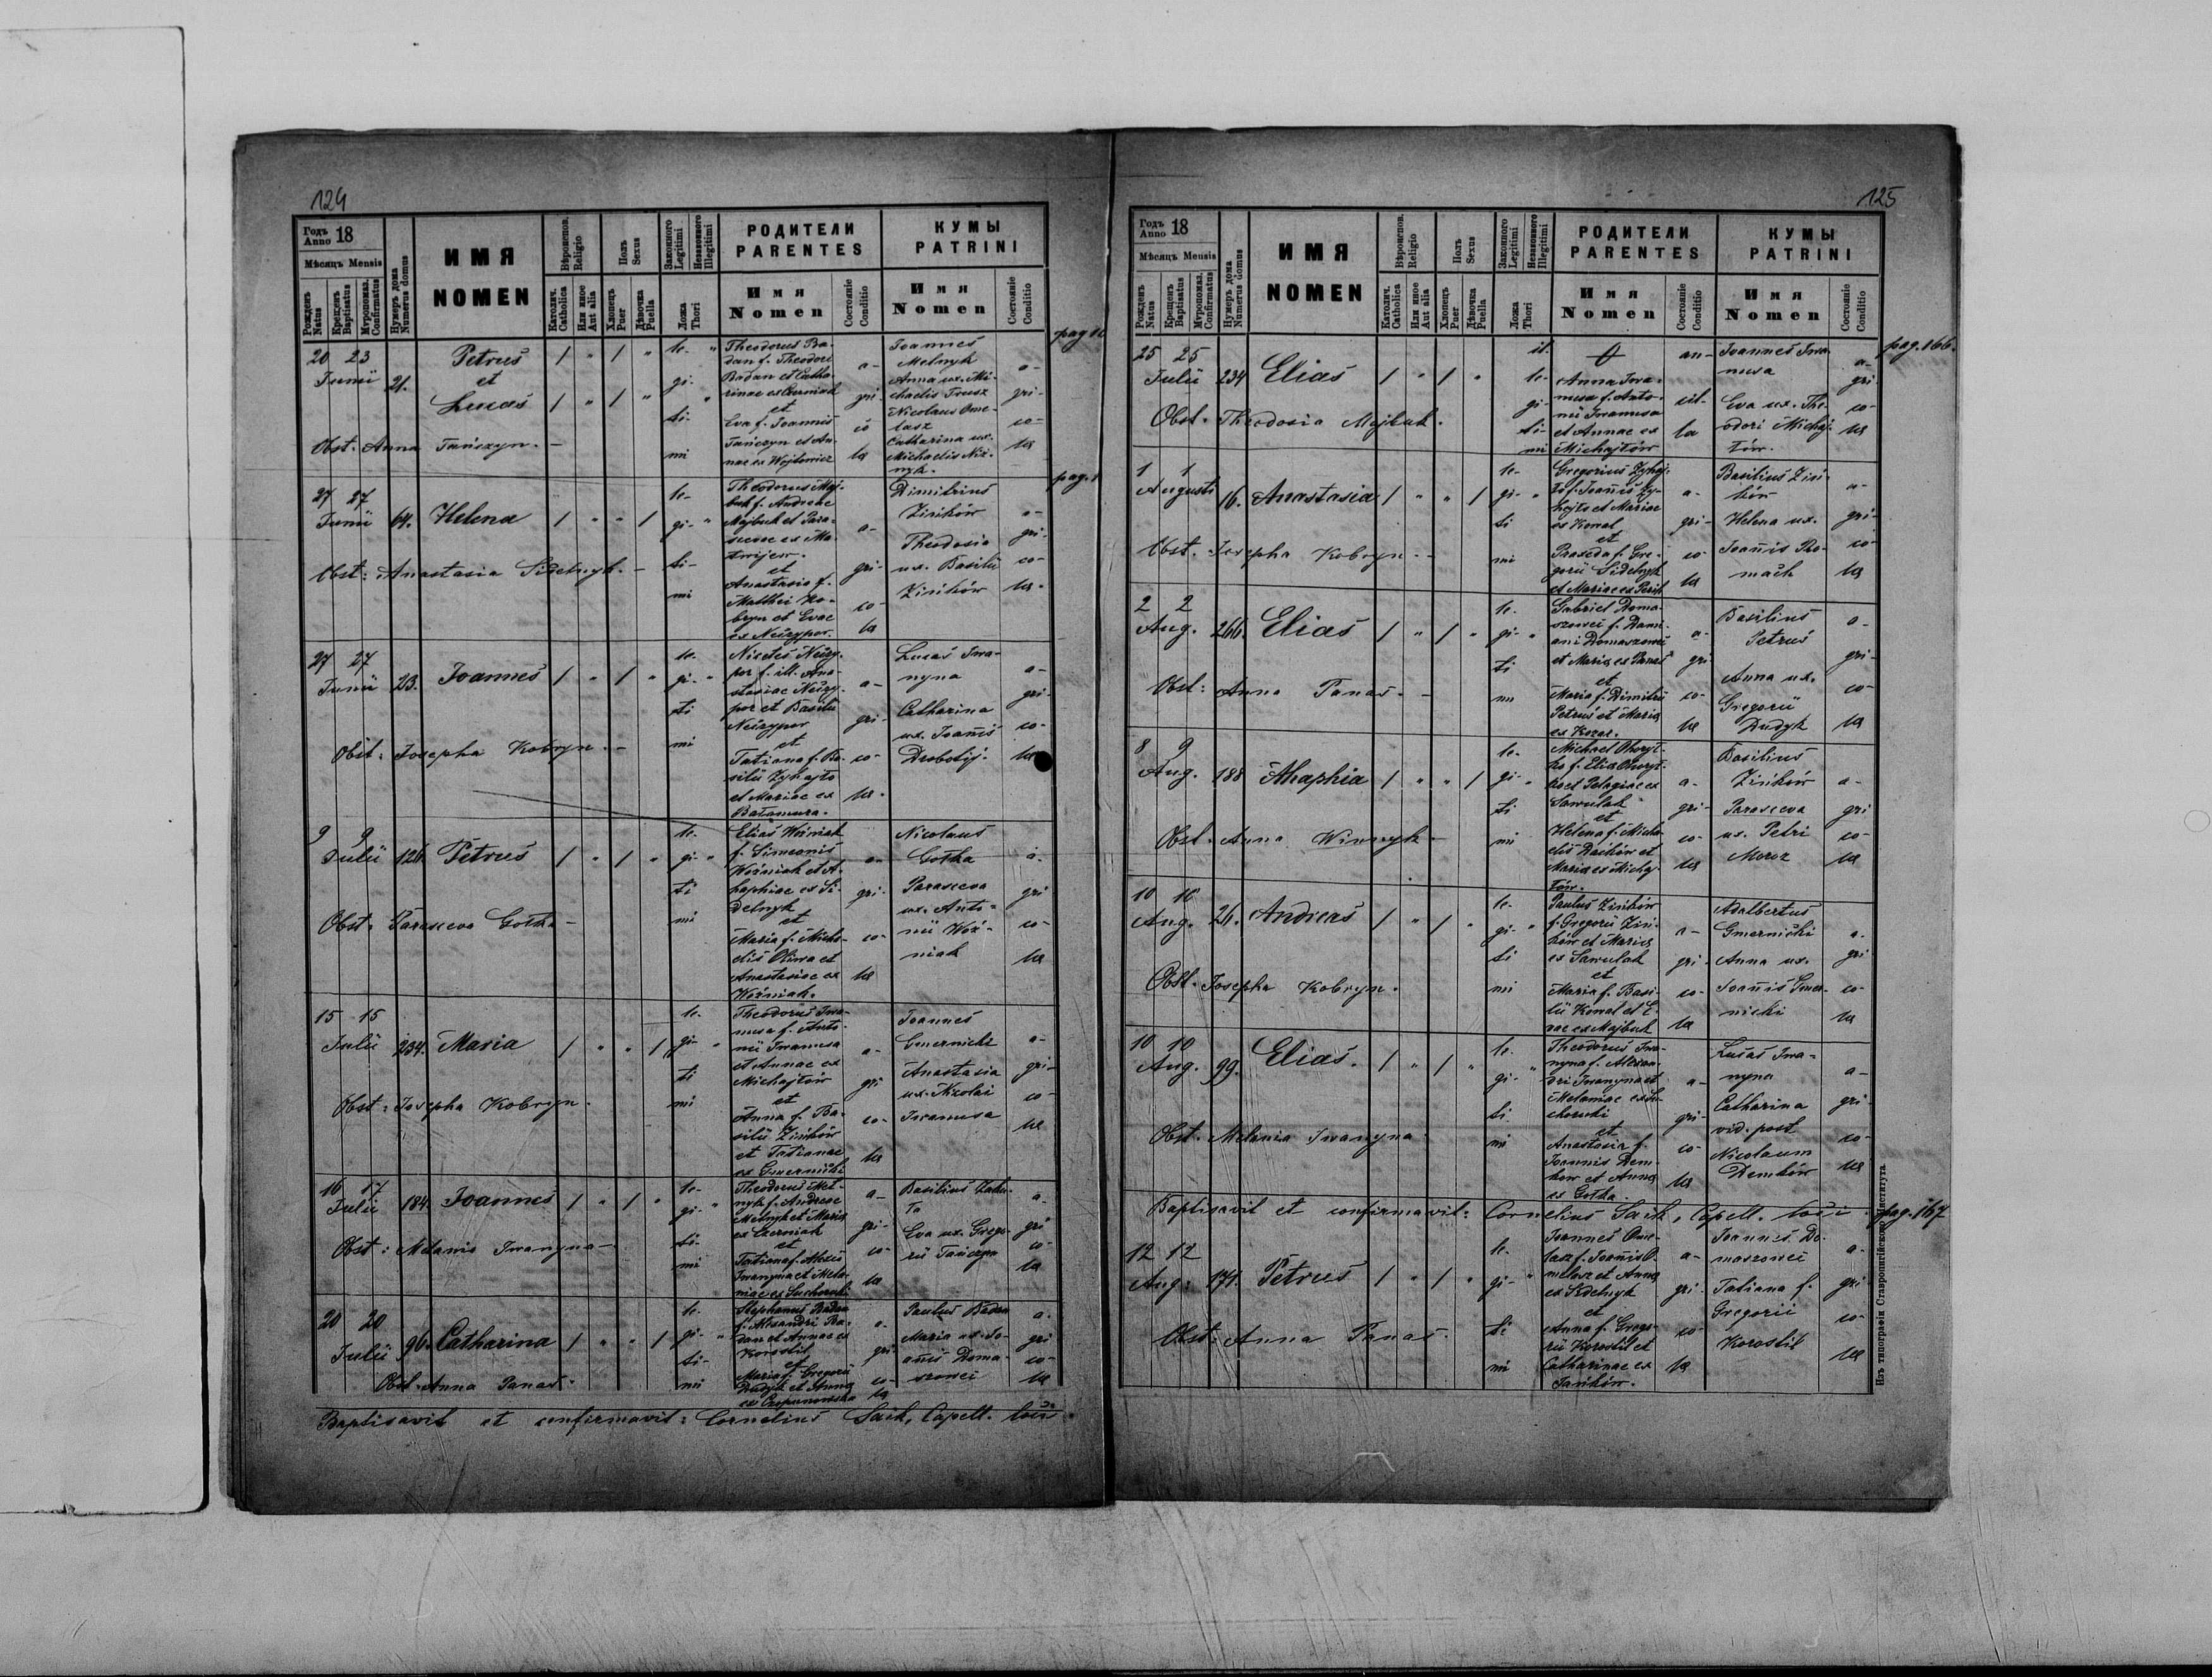 124
Годъ Anno 18
Мѣсяцъ Mensis
Рожденъ Natus
Крещенъ Baptisatus
Мѵропомаз. Confirmatus
Нумеръ дома Numerus domus
ИМЯ
NOMEN
Вѣроисповѣд. Religio
Католич. Catholica
Или иное Aut alia
Полъ Sexus
Хлопецъ Puer
Дѣвочка Puella
Законного Legitimi
Незаконного Illegitimi
Ложа Thori
РОДИТЕЛИ
PARENTES
Имя
Nomen
Состояніе Conditio
КУМЫ
PATRINI
Имя
Nomen
Состояніе Conditio
20 23
Junii 21.
Petrus
et
Lucas
1 " 1 "
1 " 1 "
le-
gi-
ti-
mi
Theodorus Ba-
dan f. Theodori
Badan et Catha-
rinae ex Czerniak
et
Eva f. Joannis
Tańczyn et An-
nae ex Wojtowicz
a-
gri-
co
la
Joannes
Melnyk
Anna ux. Mi-
chaelis Trusz
Nicolaus Ome-
lasz
Catharina ux.
Michaelis Niż-
nyk.
a-
gri-
co-
la
Obst. Anna Tańczyn. -
27 27
Junii 64. Helena 1 " " 1
le-
gi- "
ti-
mi
Theodorus Maj-
buk f. Andreae
Majbuk et Para-
scevae ex Ma-
twijew.
et
Anastasia f.
Matthei Ko-
bryn et Evae
ex Neczypor.
a-
gri-
co-
la
Dimitrius
Zińków
Theodosia
ux. Basilii
Zińków
a-
gri-
co-
la.
Obst: Anastasia Sidelnyk. -
27 27
Junii 23. Joannes 1 " 1 "
le-
gi- "
ti
mi
Nicetas Neczy-
por f. ill. Ana-
stasiae Neczy-
por et Basilii
Neczypor
et
Tatiana f. Ba-
silii Zyhajto
et Mariae ex
Batamura.
a-
gri-
co-
la.
Lucas Iwa-
nyna
Catharina
ux. Joannis
Drobotij.
a-
gri-
co-
la
Obst: Josepha Kobryn. -
9 9
Julii 126. Petrus 1 " 1 "
le-
gi- "
ti
mi
Elias Woźniak
f. Simeonis
Woźniak et A-
haphiae ex Si-
delnyk
et
Maria f. Micha-
elis Oliwa et
Anastasiae ex
Woźniak.
a-
gri-
co-
la
Nicolaus
Gołka
Parasceva
ux. Anto-
nii Woź-
niak
a-
gri
co-
la
Obst: Parasceva Gołka -
15 15
Julii 234. Maria 1 " " 1
le-
gi- "
ti
mi
Theodorus Iwa-
nusa f. Anto-
nii Iwanusa
et Annae ex
Michajłów
et
Anna f. Ba-
silii Zińków
et Tatianae
ex Gmernicki
a-
gri
co-
la
Joannes
Gmernicki
Anastasia
ux. Nicolai
Iwanusa
a-
gri-
co-
la
Obst: Josepha Kobryn.
16 17
Julii 184. Joannes 1 " 1 "
le-
gi- "
ti-
mi
Theodorus Mel-
nyk f. Andreae
Melnyk et Maria
ex Czerniak
et
Tatiana f. Alexii
Iwanyna et Mela-
niae ex Suchorski
a-
gri-
co-
la
Eva ux. Grego-
rii Tańczyn
a-
gri
co-
la
Obst: Melania Iwanyna -
20 20
Julii 96. Catharina 1 " " 1
le-
gi- "
ti-
mi
Stephanus Badan
f. Alexandri Ba-
dan et Annae ex
Korostil
et
Maria f. Gregorii
Dudyk et Anna
a-
gri
co-
la
Paulus Badan
Maria ux. Jo-
annis Doma-
szowei
a.
gri
co-
la
Obst. Anna Panas.
Baptisavit et confirmavit: Cornelius Saik, Capell. loci
125
Годъ Anno 18
Мѣсяцъ Mensis
Рожденъ Natus
Крещенъ Baptisatus
Мѵропомаз. Confirmatus
Нумеръ дома Numerus domus
ИМЯ
NOMEN
Вѣроисповѣд. Religio
Католич. Catholica
Или иное Aut alia
Полъ Sexus
Хлопецъ Puer
Дѣвочка Puella
Законного Legitimi
Незаконного Illegitimi
Ложа Thori
РОДИТЕЛИ
PARENTES
Имя
Nomen
Состояніе Conditio
КУМЫ
PATRINI
Имя
Nomen
Состояніе Conditio
pag. 166.
25 25
Julii 234 Elias 1 " 1 "
il-
le-
gi-
ti-
mi
Anna Iwa-
nusa f. Anto-
nii Iwanusa
et Annae ex
Michajłów
an-
cil-
la
Joannes Iwa-
nusa
Eva ux. The-
odori Michaj-
łów.
a-
gri-
co-
la
Obst. Theodosia Majbuk.
1 1
Augusti 16. Anastasia 1 " " 1
le-
gi- "
ti
mi
Gregorius Zyhaj-
to f. Joannis Zy-
hajto et Mariae
ex Kowal
et
Praxeda f. Gre-
gorii Sidelnyk
a-
gri-
co-
la
Basilius Ziń-
ków
Helena ux.
Joannis Ro-
mach
a-
gri-
co-
la
Obst. Josepha Kobryn. -
2 2
Aug. 266. Elias 1 " 1 "
le-
gi- "
ti
mi
Gabriel Doma-
szowei f. Dami-
ani Domaszowei
et Maria ex Panas
et
Maria f. Dimitrii
Petrus et Maria
ex Kozar.
a-
gri
co-
la
Basilius
Petrus
Anna ux.
Gregorii
Dudyk
a-
gri-
co-
la
Obst: Anna Panas. -
8 9
Aug. 188 Ahaphia 1 " " 1
le-
gi- "
ti
mi
Sawulak
et
Helena f. Micha-
elis Dańków et
Maria ex Michaj-
łów.
a-
gri-
co-
la
Basilius
Zińków
Parasceva
ux. Petri
Moroz
a-
gri
co-
la
Obst. Anna Winnyk -
10 10
Aug. 26. Andreas 1 " 1 "
le-
gi- "
ti
mi
Paulus Zińków
f. Gregorii Ziń-
ków et Maria
ex Sawulak
et
Maria f. Basi-
lii Kowal et E-
vae ex Majbuk
a-
gri-
co-
la
Adalbertus
Gmernicki
Anna ux.
Joannis Gmer-
nicki
a-
gri
co-
la
Obst. Josepha Kobryn.
10 10
Aug. 99. Elias. 1 " 1 "
le-
gi- "
ti
mi
Theodorus Iwa-
nyna f. Alexan-
dri Iwanyna et
Melaniae ex Su-
chorski
et
Anastasia f.
Joannis Dem-
ków et Anna
ex Gołka.
a-
gri-
co-
la
Lucas Iwa-
nyna
Catharina
vid. post
Nicolaum
Demków
a-
gri-
co-
la
Obst. Melania Iwanyna.
Baptisavit et confirmavit: Cornelius Saik, Capell. loci.
pag. 167
12 12
Aug. 171. Petrus 1 " 1 "
le-
gi- "
ti
mi
Joannes Ome-
lasz f. Joannis O-
melasz et Anna
ex Sidelnyk
et
Anna f. Grego-
rii Korostil et
Catharinae ex
Jańków.
a-
gri
co-
la
Joannes Do-
maszowei
Tatiana f.
Gregorii
Korostil
a-
gri-
co-
la
Obst: Anna Panas.
Изъ типографіи Ставропигійского Института